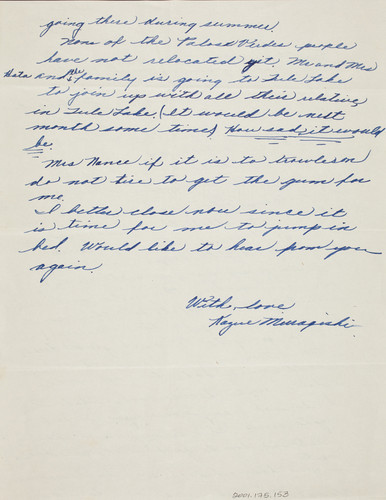 going there during summer.
None of the Palos Verdes people
have not relocated yet. Mr and Mrs
Hata and Mr's family is going to Tule Lake
to join up with all their relative
in Tule Lake. (It would be next
month some time) How sad it would
be.
Mrs Nance if it is to trowleson
do not tire to get the gum for
me.
I better close now since it
is time for me to jump in
bed. Would like to hear from you
again.
With love
Kazue
2001.175.153